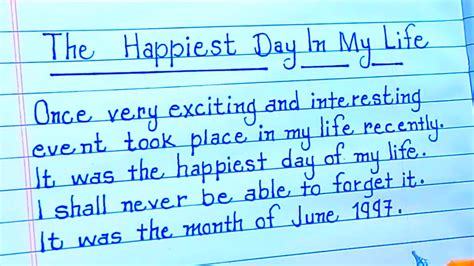 The Happiest Day In My Life
Once very exciting and interesting
event took place in my life recently.
It was the happiest day of my life.
I shall never be able to forget it.
It was the month of June 1997.